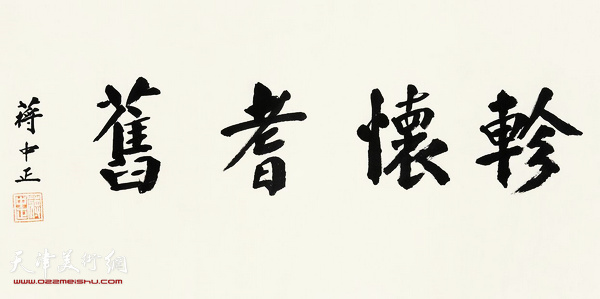 軫懷耆舊
蔣中正
天津美術網
www.022meishu.com